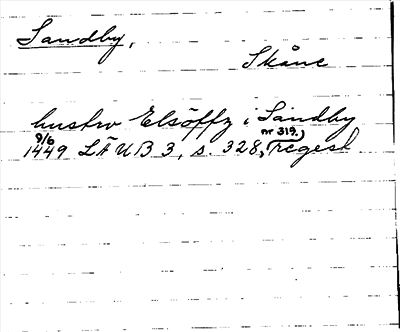 Sandby,
Skåne
hustru Elsöffz i Sandby
9/6 nr 319.)
1449 LÄUB 3, s. 328, regest